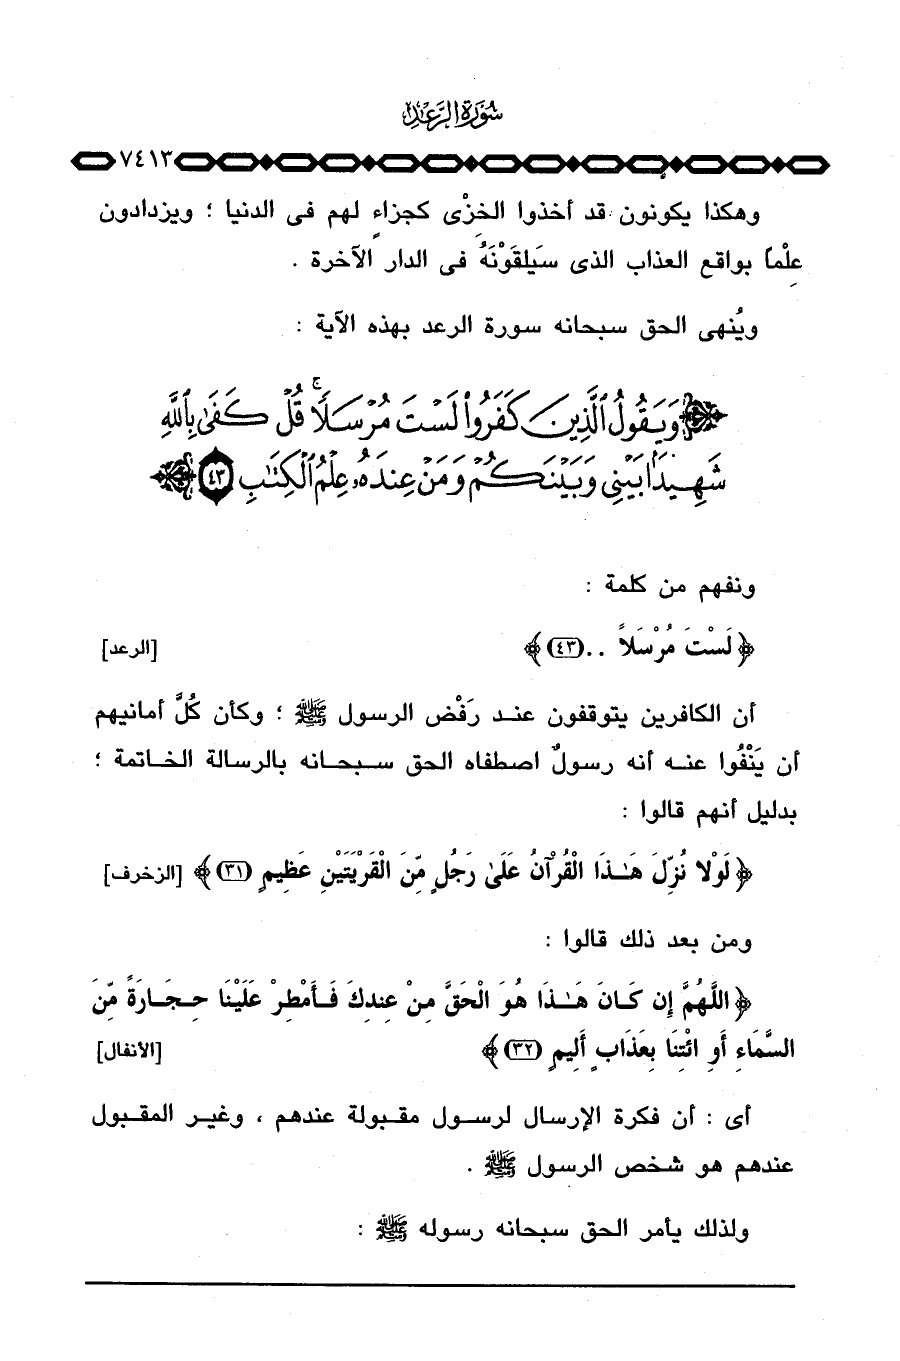 سورة الرعد
٧٤١٣
وهكذا يكونون قد أخذوا الخزْى كجزاء لهم فى الدنيا ؛ ويزدادون
علْماً بواقع العذاب الذى سَيلقَوْنَهُ فى الدار الآخرة .
ويُنهى الحق سبحانه سورة الرعد بهذه الآية :
وَيَقُولُ ٱلَّذِينَ كَفَرُواْ لَسْتَ مُرْسَلًاۚ قُلْ كَفَىٰ بِٱللَّهِ
شَهِيدًۢا بَيْنِى وَبَيْنَكُمْ وَمَنْ عِندَهُۥ عِلْمُ ٱلْكِتَٰبِ ٤٣
ونفهم من كلمة :
﴿ لَسْتَ مُرْسَلاً .. (٤٣) ﴾ [الرعد]
أن الكافرين يتوقفون عند رَفْض الرسول ﷺ ؛ وكأن كُلَّ أمانيهم
أن يَنْفُوا عنه أنه رسولٌ اصطفاه الحق سبحانه بالرسالة الخاتمة ؛
بدليل أنهم قالوا :
﴿ لَوْلا نُزِّلَ هَـٰذَا الْقُرْآنُ عَلَىٰ رَجُلٍ مِّنَ الْقَرْيَتَيْنِ عَظِيمٍ (٣١) ﴾ [الزخرف]
ومن بعد ذلك قالوا :
﴿ اللَّهُمَّ إِن كَانَ هَـٰذَا هُوَ الْحَقَّ مِنْ عِندِكَ فَأَمْطِرْ عَلَيْنَا حِجَارَةً مِّنَ
السَّمَاءِ أَوِ ائْتِنَا بِعَذَابٍ أَلِيمٍ (٣٢) ﴾ [الأنفال]
أى : أن فكرة الإرسال لرسول مقبولة عندهم ، وغير المقبول
عندهم هو شخص الرسول ﷺ .
ولذلك يأمر الحق سبحانه رسوله ﷺ :